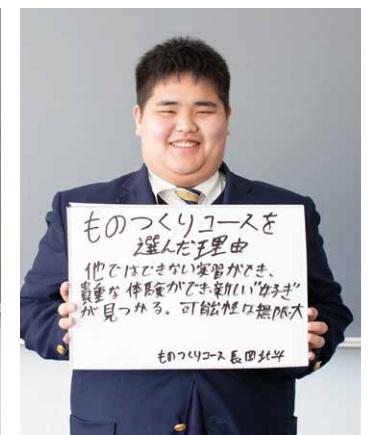 ものつくりコースを
選んだ理由
他ではできない実習ができ、
貴重な体験ができ新しい"好き"
が見つかる。可能性は無限大
ものつくりコース 長岡